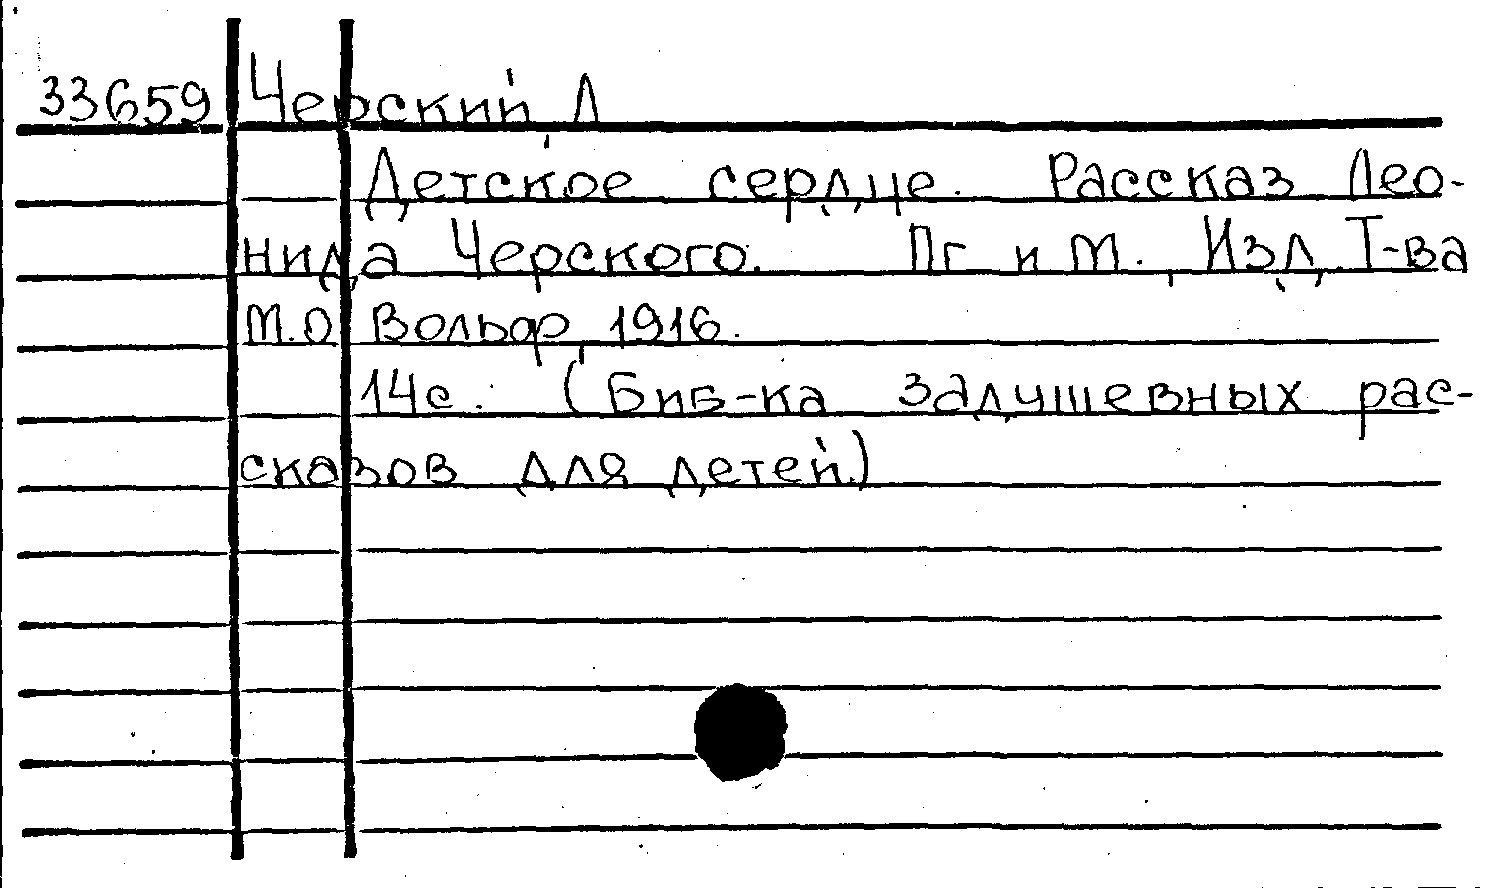 33659 Черский, Л
Детское сердце. Рассказ Лео-
нида Черского. Пг и М., Изд. Т-ва
М.О Вольф, 1916.
14с. (Биб-ка задушевных рас-
сказов для детей.)